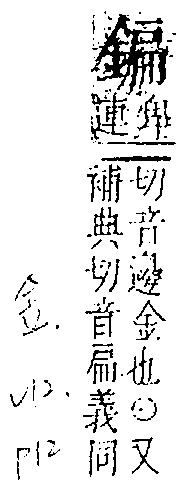 鍽
卑連
切音邊金也〇又
補典切音扁義同
金.
U12.
P12